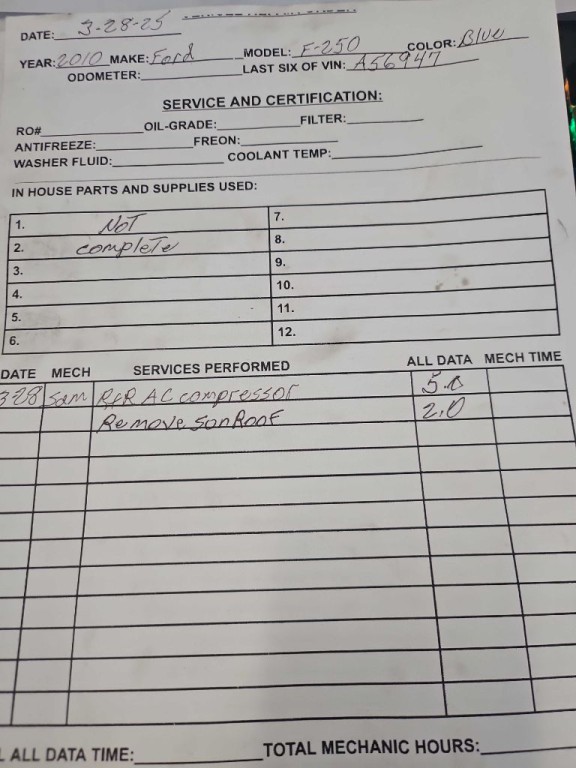 DATE: 3-28-25
YEAR: 2010 MAKE: Ford MODEL: F-250 COLOR: Blue
ODOMETER: LAST SIX OF VIN: A56947
SERVICE AND CERTIFICATION:
RO# OIL-GRADE: FILTER:
ANTIFREEZE: FREON:
WASHER FLUID: COOLANT TEMP:
IN HOUSE PARTS AND SUPPLIES USED:
1. NOT 7.
2. complete 8.
3. 9.
4. 10.
5. 11.
6. 12.
DATE MECH SERVICES PERFORMED ALL DATA MECH TIME
3-28 Sam R&R AC compressor 5.0
Remove SonRoof 2.0
L ALL DATA TIME: TOTAL MECHANIC HOURS: